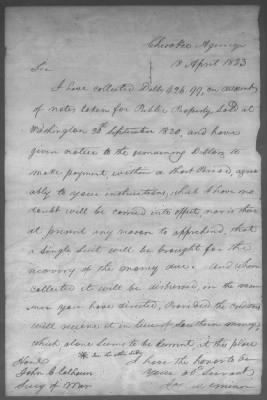 Cherokee Agency
18 April 1823
Sir
I have collected Dolls 426 77, on account
of notes taken for Public Property, Sold at
Washington 28th September 1820, and have
given notice to the remaining Debtors to
make payment, within a short Period, agree
ably to your instructions, which I have no
doubt will be carried into effect, nor is there
at present any reason to apprehend, that
a single Suit will be brought for the
recovery of the money due. and when
collected it will be disbursed, in the man
ner you have directed, Provided the
will receive it in lieu of Southern money,
which alone seems to be current, at this place
I have the honor to be
Your ob Servant
Hone
John C Calhoun
Secy of War